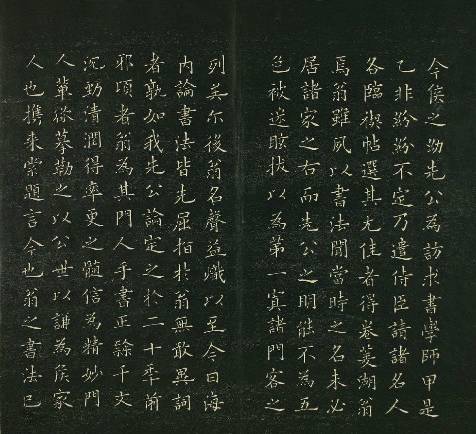 今侯之幼先公為訪求書學師甲是
乙非紛紛不定乃遣侍臣請諸名人
各臨禊帖選其尤佳者得卷菱湖翁
焉翁雖夙以書法聞當時之名未必
居諸家之右而先公之明能不為五
色被迷眩拔以為第一寘諸門客之
列矣尔後翁名聲益熾以至今日海
内論書法皆先屈指於翁無敢異詞
者孰知我先公論定之於二十年前
邪頃者翁為其門人手書正隸千文
沉勁清潤得率更之髓信為精妙門
人輩欲摹勒之以公世以謙為侯家
人也携来索題言今也翁之書法已